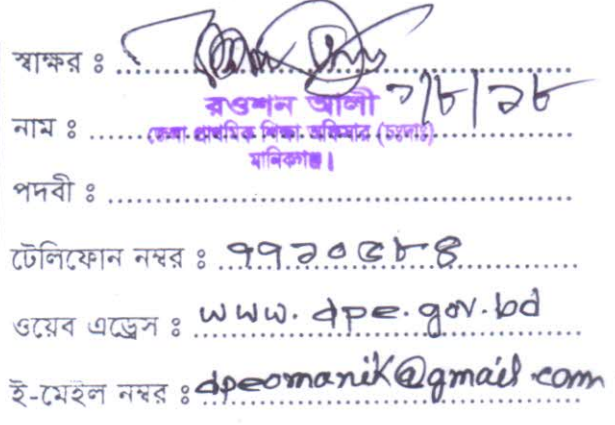 স্বাক্ষর ঃ
রওশন আলী ১/৮/১৮
নাম ঃ জেলা প্রাথমিক শিক্ষা অফিসার (চঃদাঃ)
মানিকগঞ্জ।
পদবী ঃ
টেলিফোন নম্বর ঃ ৭৭১০৫৮৪
ওয়েব এড্রেস ঃ www.dpe.gov.bd
ই-মেইল নম্বর ঃ dpeomanik@gmail.com